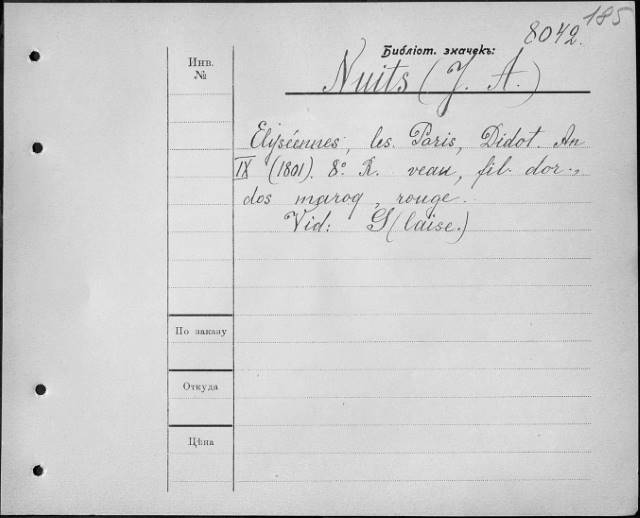 185
8042.
Библіот. значекъ:
Инв.
№
Nuits (J. A.)
Elyséennes, les. Paris, Didot. An
IX (1801). 8º. R. veau, fil. dor.,
dos maroq, rouge.
Vid: G(laise.)
По заказу
Откуда
Цѣна